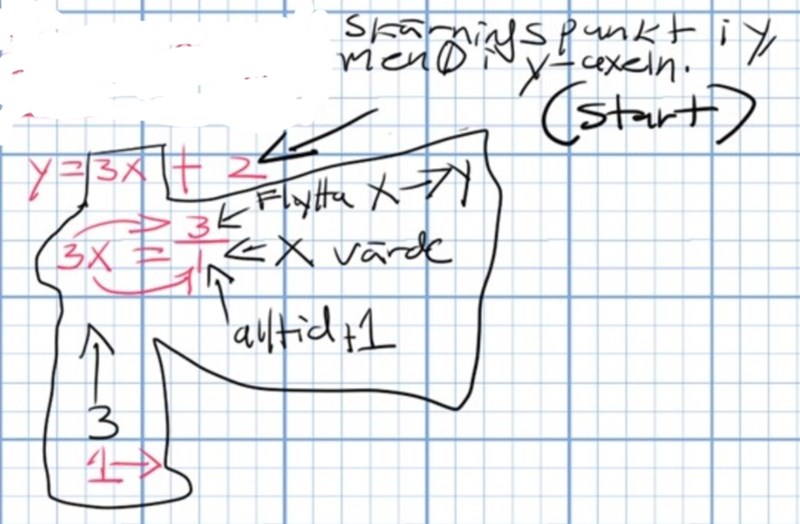 Skärningspunkt i y,
men 0 i y-axeln.
(start)
y = 3x + 2
← Flytta X → Y
3x = 3/1 ← X värde
alltid +1
3
1 →